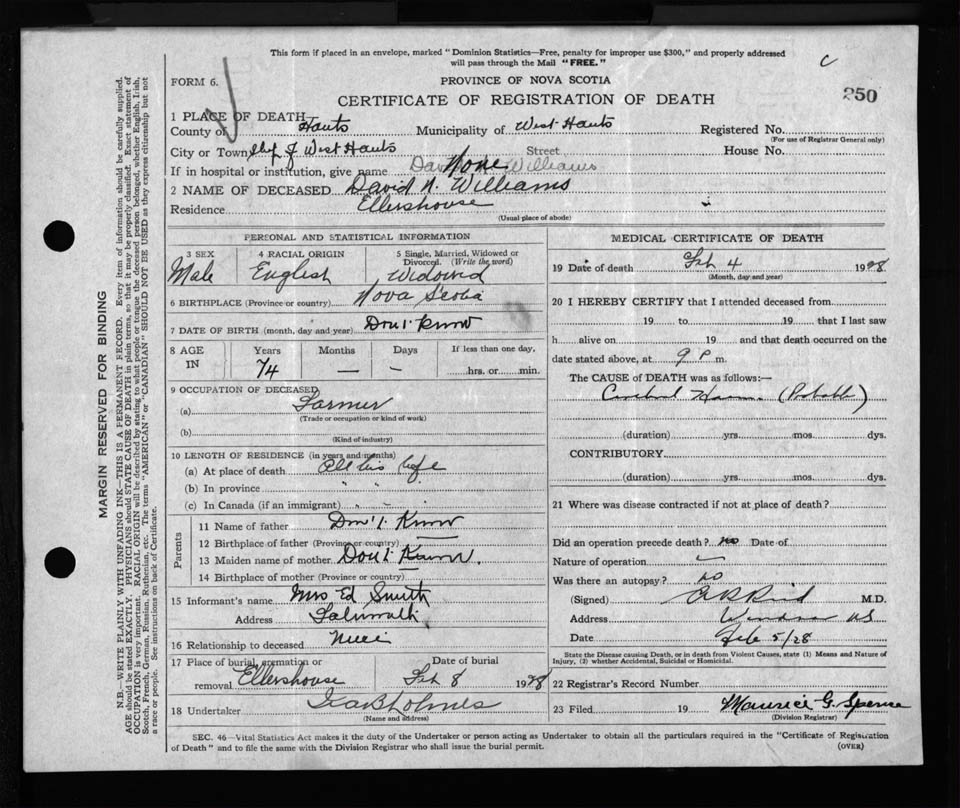 This form if placed in an envelope, marked "Dominion Statistics—Free, penalty for improper use $300," and properly addressed
will pass through the Mail "FREE."
C
FORM 6.
PROVINCE OF NOVA SCOTIA
250
CERTIFICATE OF REGISTRATION OF DEATH
1 PLACE OF DEATH
County of Hants Municipality of West Hants Registered No.
(For use of Registrar General only)
City or Town of West Hants Street House No.
If in hospital or institution, give name None Williams
2 NAME OF DECEASED David N. Williams
Residence Ellershouse
(Usual place of abode)
PERSONAL AND STATISTICAL INFORMATION
3 SEX 4 RACIAL ORIGIN 5 Single, Married, Widowed or
Divorced. (Write the word)
Male English Widowed
6 BIRTHPLACE (Province or country) Nova Scotia
7 DATE OF BIRTH (month, day and year) Don't Know
8 AGE Years Months Days If less than one day,
IN 74 — – hrs. or min.
9 OCCUPATION OF DECEASED
(a) Farmer
(Trade or occupation or kind of work)
(b)
(Kind of industry)
10 LENGTH OF RESIDENCE (in years and months)
(a) At place of death All his life
(b) In province " "
(c) In Canada (if an immigrant)
Parents
11 Name of father Don't Know
12 Birthplace of father (Province or country)
13 Maiden name of mother Don't Know.
14 Birthplace of mother (Province or country)
15 Informant's name Mrs Ed Smith
Address
16 Relationship to deceased Niece
17 Place of burial, cremation or Date of burial
removal Ellershouse Feb 8 1928
18 Undertaker Holmes
(Name and address)
MEDICAL CERTIFICATE OF DEATH
19 Date of death Feb 4 1928
(Month, day and year)
20 I HEREBY CERTIFY that I attended deceased from
19 to 19 that I last saw
h alive on 19 and that death occurred on the
date stated above, at 9 P.m.
The CAUSE of DEATH was as follows:—
Cerebral Haem. (Probable)
(duration) yrs. mos. dys.
CONTRIBUTORY
(duration) yrs. mos. dys.
21 Where was disease contracted if not at place of death?
Did an operation precede death? no Date of
Nature of operation
Was there an autopsy? no
(Signed) Reid M.D.
Address Windsor NS
Date Feb 5/28
State the Disease causing Death, or in death from Violent Causes, state (1) Means and Nature of
Injury, (2) whether Accidental, Suicidal or Homicidal.
22 Registrar's Record Number
23 Filed 19 Maurice G. Spence
(Division Registrar)
SEC. 46—Vital Statistics Act makes it the duty of the Undertaker or person acting as Undertaker to obtain all the particulars required in the "Certificate of Registration
of Death" and to file the same with the Division Registrar who shall issue the burial permit.
(OVER)
MARGIN RESERVED FOR BINDING
N.B.—WRITE PLAINLY WITH UNFADING INK—THIS IS A PERMANENT RECORD. Every item of information should be carefully supplied.
AGE should be stated EXACTLY. PHYSICIANS should STATE CAUSE OF DEATH in plain terms, so that it may be properly classified. Exact statement of
OCCUPATION is very important. RACIAL ORIGIN will be described by stating to what people or tongue the deceased person belonged, whether English, Irish,
Scotch, French, German, Russian, Ruthenian, etc. The terms "AMERICAN" or "CANADIAN" SHOULD NOT BE USED as they express citizenship but not
a race or people. See instructions on back of Certificate.